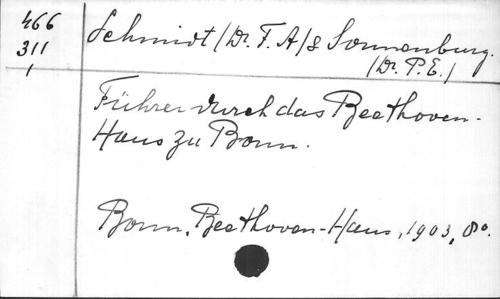 466
311
1
Schmidt (Dr. F. A) & Sonnenburg.
(Dr. P. E.)
Führer durch das Beethoven-
Haus zu Bonn.
Bonn, Beethoven-Haus, 1903, 8o.